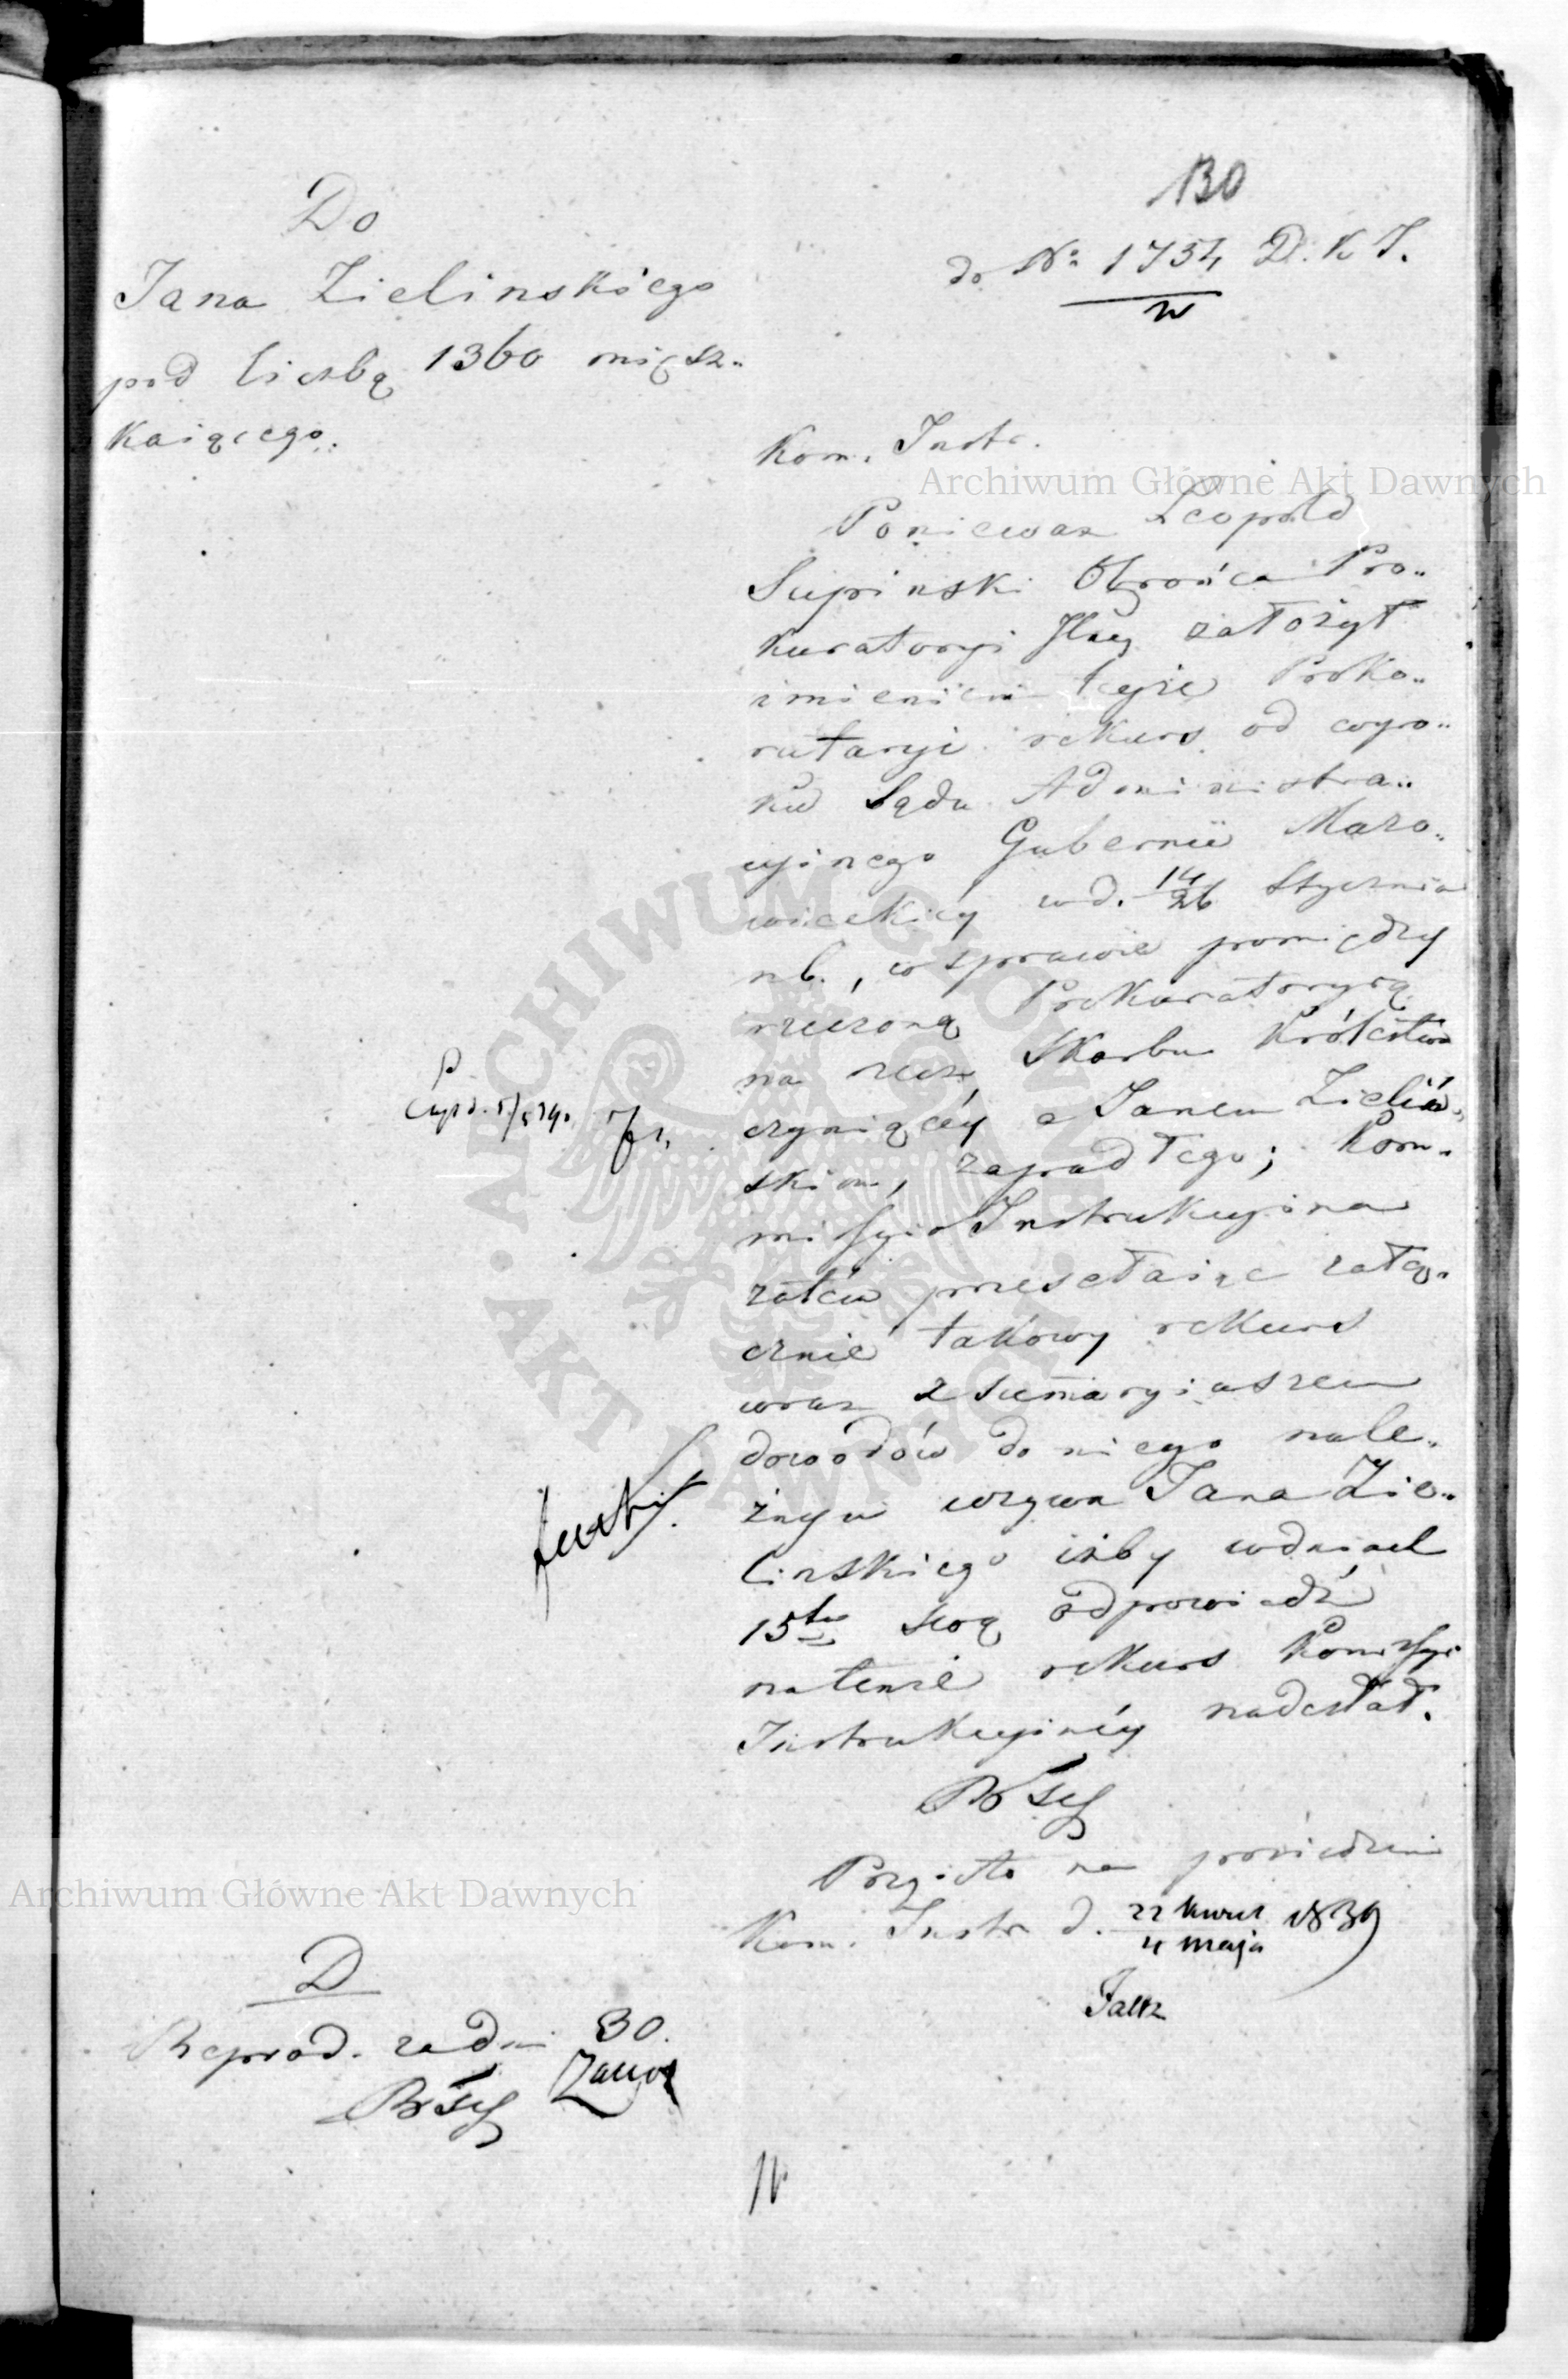 130
do No 1734 D. K I.
w
Do
Jana Zielinskiego
pod liczbą 1360 miesz„
kaiącego.
Kom. Instr.
Ponieważ Leopold
Supinski Obrońca Pro„
kuratoryi założył
imieniem teyże Proko„
ratoryi rekurs od wyro„
ku Sądu Administra„
cyjnego Gubernii Mazo„
wieckiey w d. 14/26 Stycznia
r. b., w sprawie pomiędzy
rzeczoną Prokuratoryą
na rzecz Skarbu Królestwa
czyniącéy a Janem Zieliń„
skim, zapadłego; Kom„
missyia Instrukcyina
zatém przesełaiąc załą„
cznie takowy rekurs
wraz z sumaryiuszem
dowodów do niego nale„
żnym wzywa Jana Zie„
linskiego iżby w dniach
15tu swą odpowiedź
na tenże rekurs Komissyi
Instrukcyinéy nadesłał.
Przyięto na posiedzeniu
Kom. Instr d. 22 kwiet/4 maja 1839
Faltz
D
Reprod. za dni 30.
Archiwum Główne Akt Dawnych
Archiwum Główne Akt Dawnych
ARCHIWUM GŁÓWNE
AKT DAWNYCH